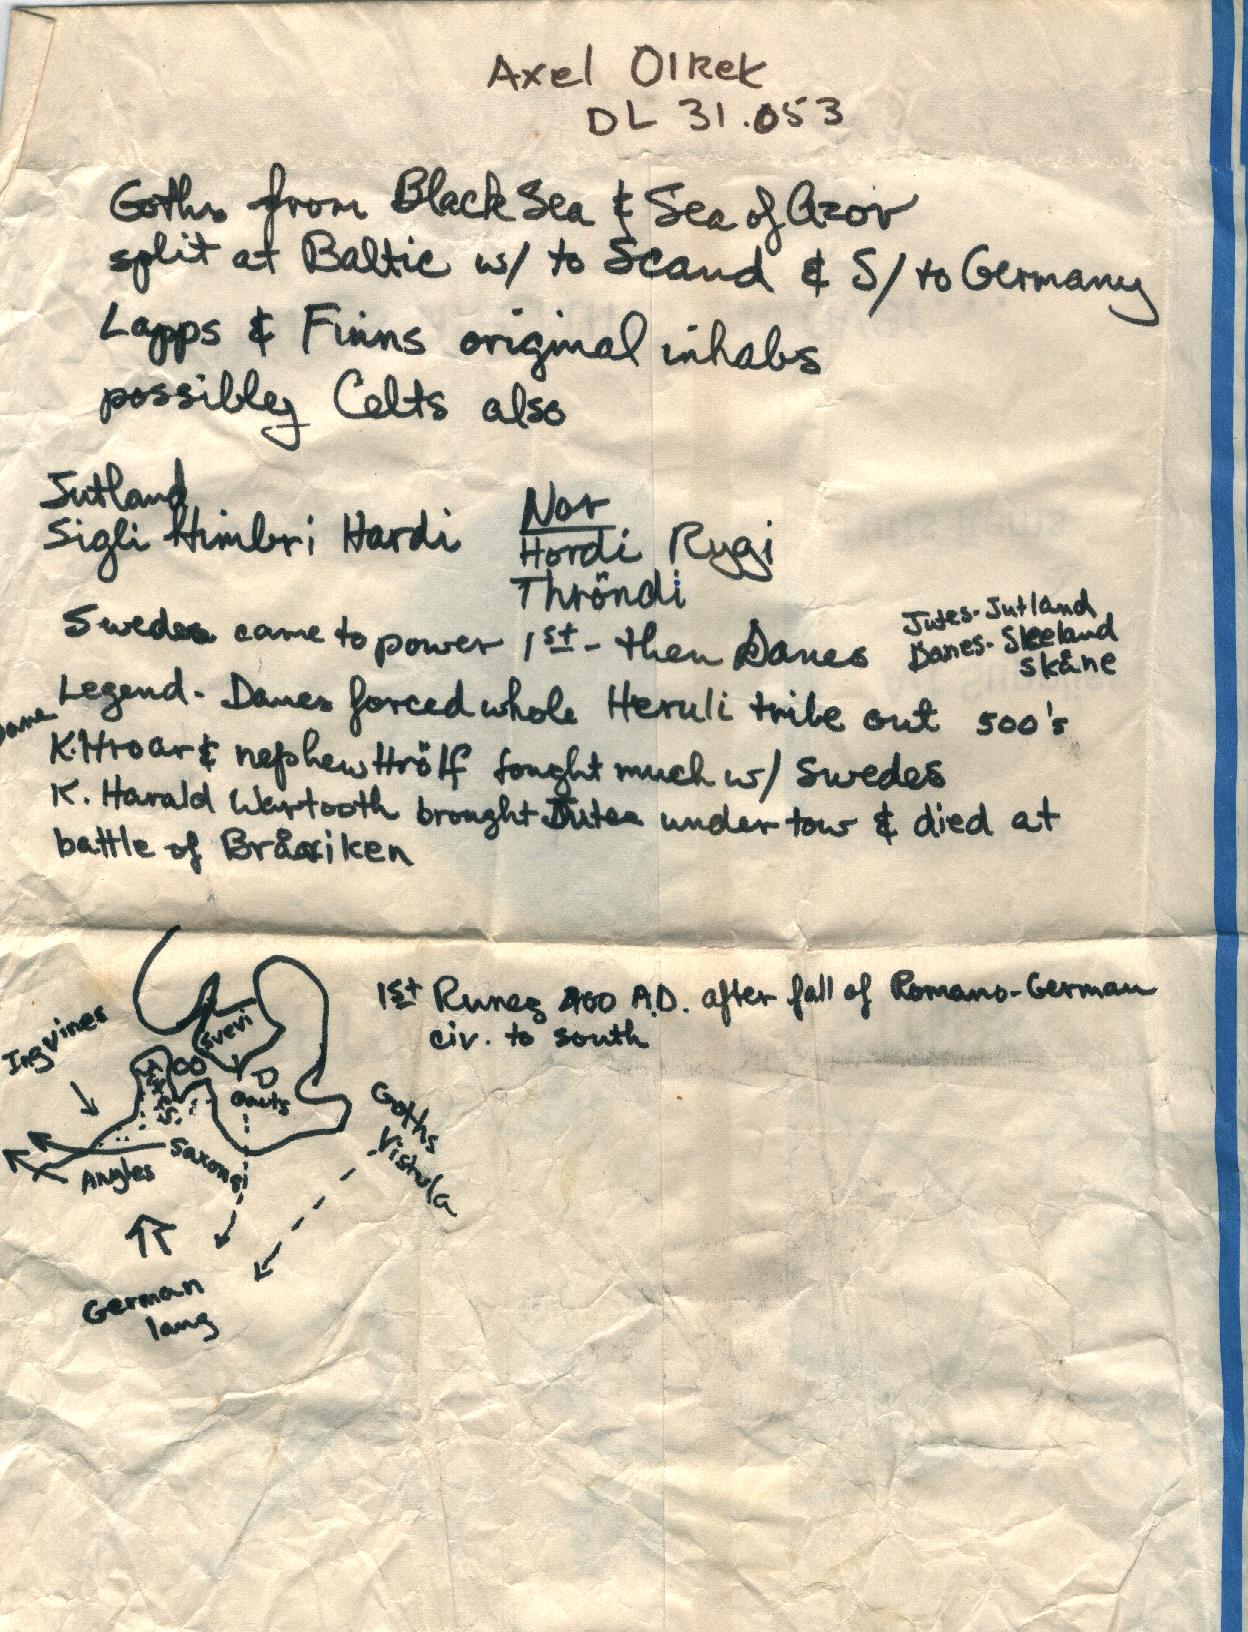 Axel Olrek
DL 31.053
Goths from Black Sea & Sea of Azov
split at Baltic w/ to Scand & S/ to Germany
Lapps & Finns original inhabs
possibley Celts also
Jutland
Sigli Himbri Hardi
Nor
Hordi Rygi
Thröndi
Swedes came to power 1st - then Danes
Jutes - Jutland
Danes - Skeeland
Skåne
Legend - Danes forced whole Heruli tribe out 500's
Dane
K. Hroar & nephew Hrölf fought much w/ Swedes
K. Harald Wartooth brought Jutes under tow & died at
battle of
1st Runes 400 A.D. after fall of Romano-German
civ. to south
Ingvines
Svevi
D
Gauts
Goths
Vistula
Saxons
Angles
German
lang